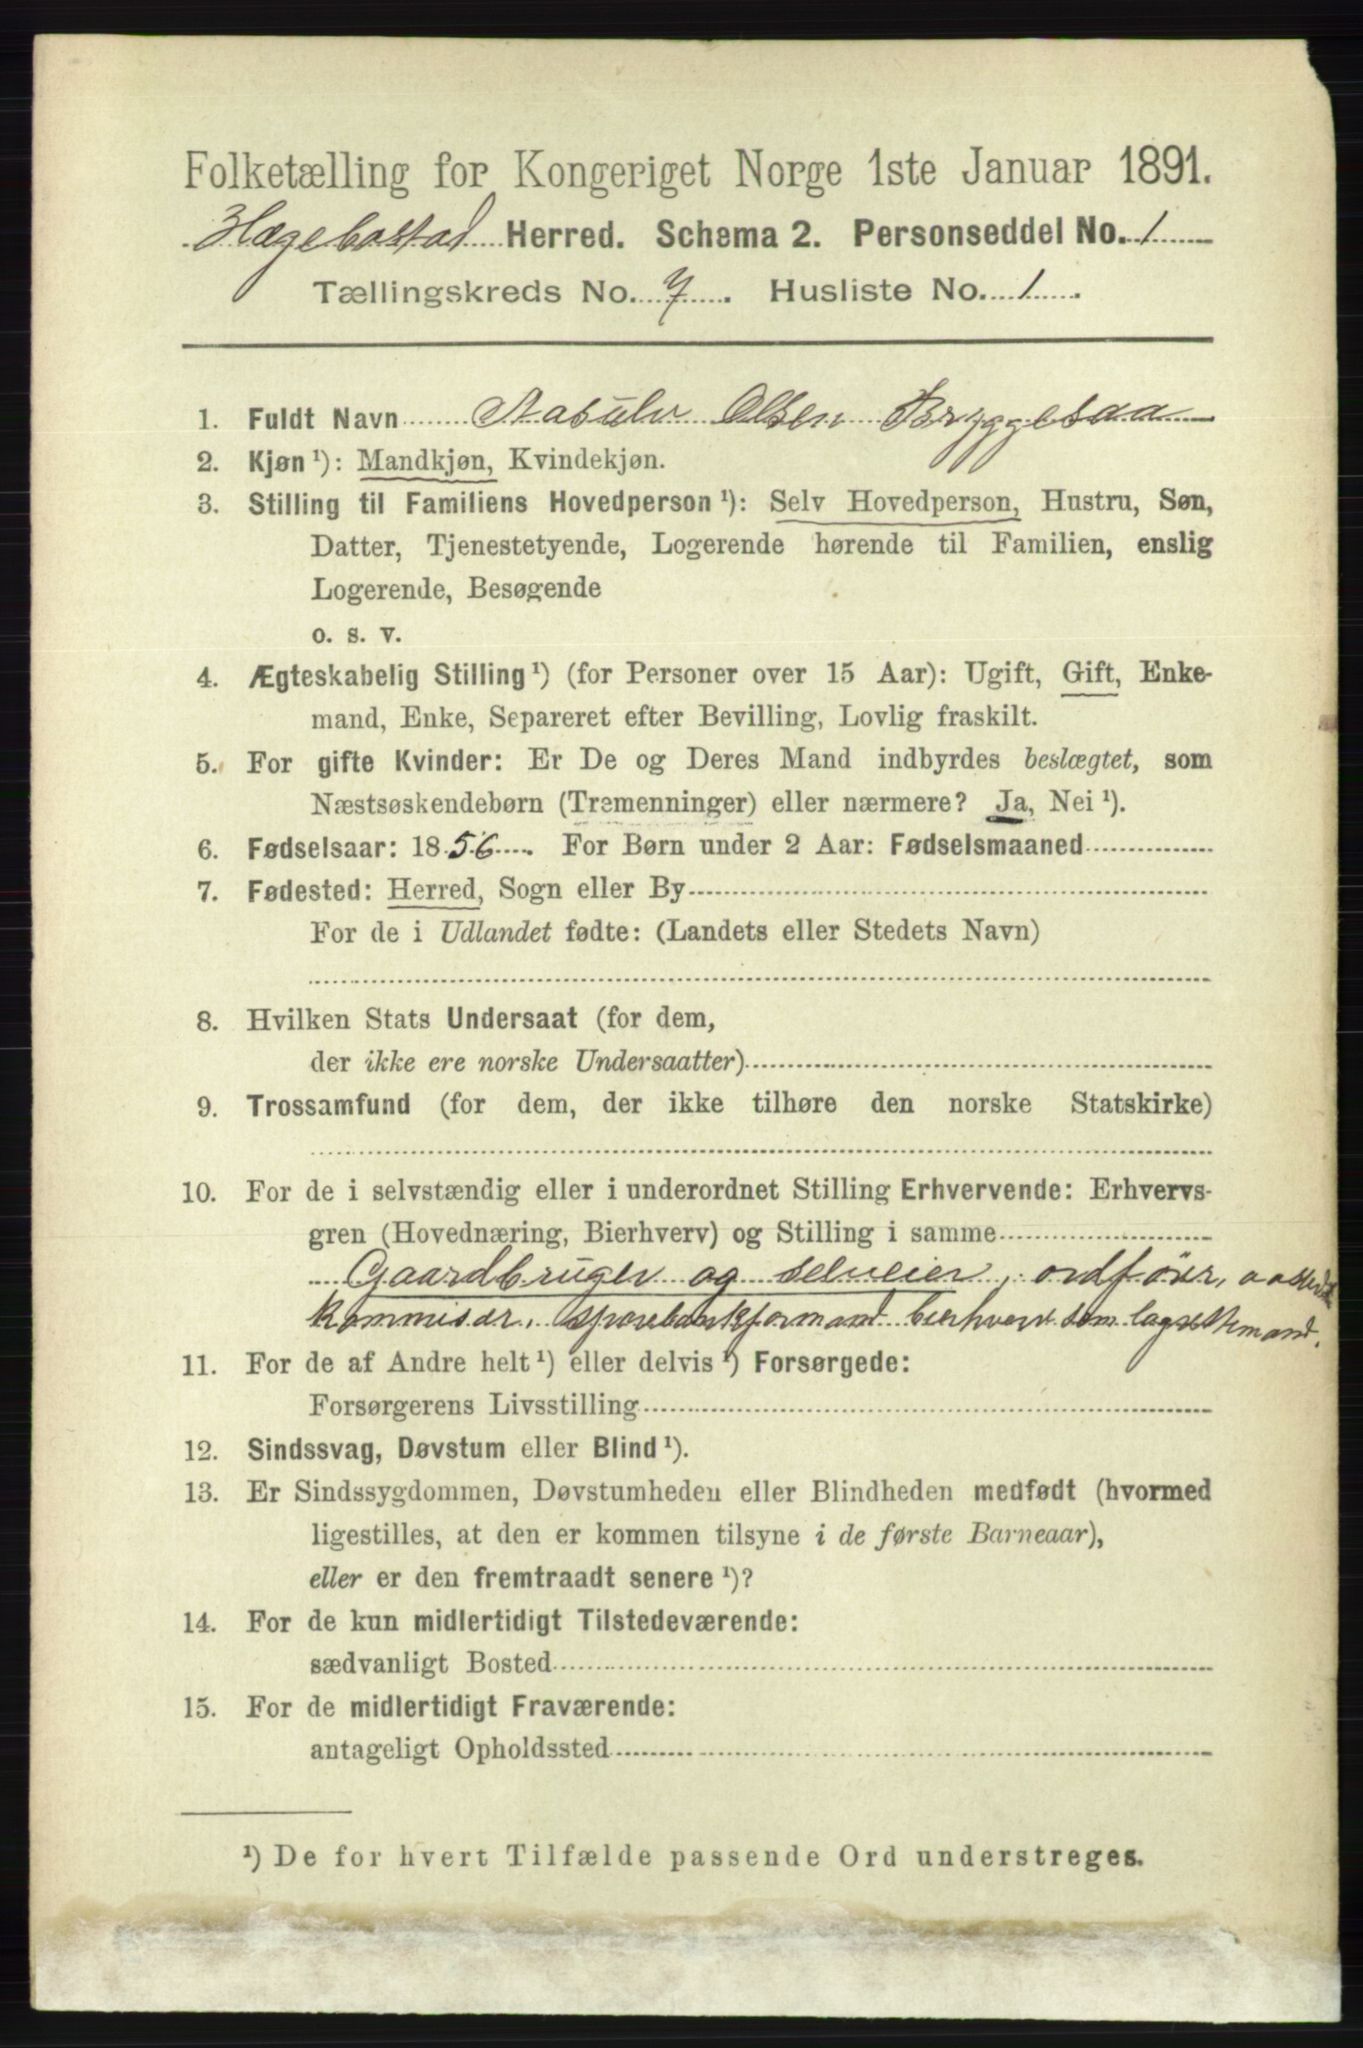 Folketælling for Kongeriget Norge 1ste Januar 1891.
Hægebostad Herred. Schema 2. Personseddel No. 1
Tællingskreds No. 7. Husliste No. 1.
1. Fuldt Navn Aasulv Olsen Bryggesaa
2. Kjøn ¹): Mandkjøn, Kvindekjøn.
3. Stilling til Familiens Hovedperson ¹): Selv Hovedperson, Hustru, Søn,
Datter, Tjenestetyende, Logerende hørende til Familien, enslig
Logerende, Besøgende
o. s. v.
4. Ægteskabelig Stilling ¹) (for Personer over 15 Aar): Ugift, Gift, Enke-
mand, Enke, Separeret efter Bevilling, Lovlig fraskilt.
5. For gifte Kvinder: Er De og Deres Mand indbyrdes beslægtet, som
Næstsøskendebørn (Tremenninger) eller nærmere? Ja, Nei ¹).
6. Fødselsaar: 1856. For Børn under 2 Aar: Fødselsmaaned
7. Fødested: Herred, Sogn eller By
For de i Udlandet fødte: (Landets eller Stedets Navn)
8. Hvilken Stats Undersaat (for dem,
der ikke ere norske Undersaatter)
9. Trossamfund (for dem, der ikke tilhøre den norske Statskirke)
10. For de i selvstændig eller i underordnet Stilling Erhvervende: Erhvervs-
gren (Hovednæring, Bierhverv) og Stilling i samme
Gaardbruger og selveier, ordfører,
kommisær, sparebankformand bierhverv som
11. For de af Andre helt ¹) eller delvis ¹) Forsørgede:
Forsørgerens Livsstilling
12. Sindssvag, Døvstum eller Blind ¹).
13. Er Sindssygdommen, Døvstumheden eller Blindheden medfødt (hvormed
ligestilles, at den er kommen tilsyne i de første Barneaar),
eller er den fremtraadt senere ¹)?
14. For de kun midlertidigt Tilstedeværende:
sædvanligt Bosted
15. For de midlertidigt Fraværende:
antageligt Opholdssted
¹) De for hvert Tilfælde passende Ord understreges.